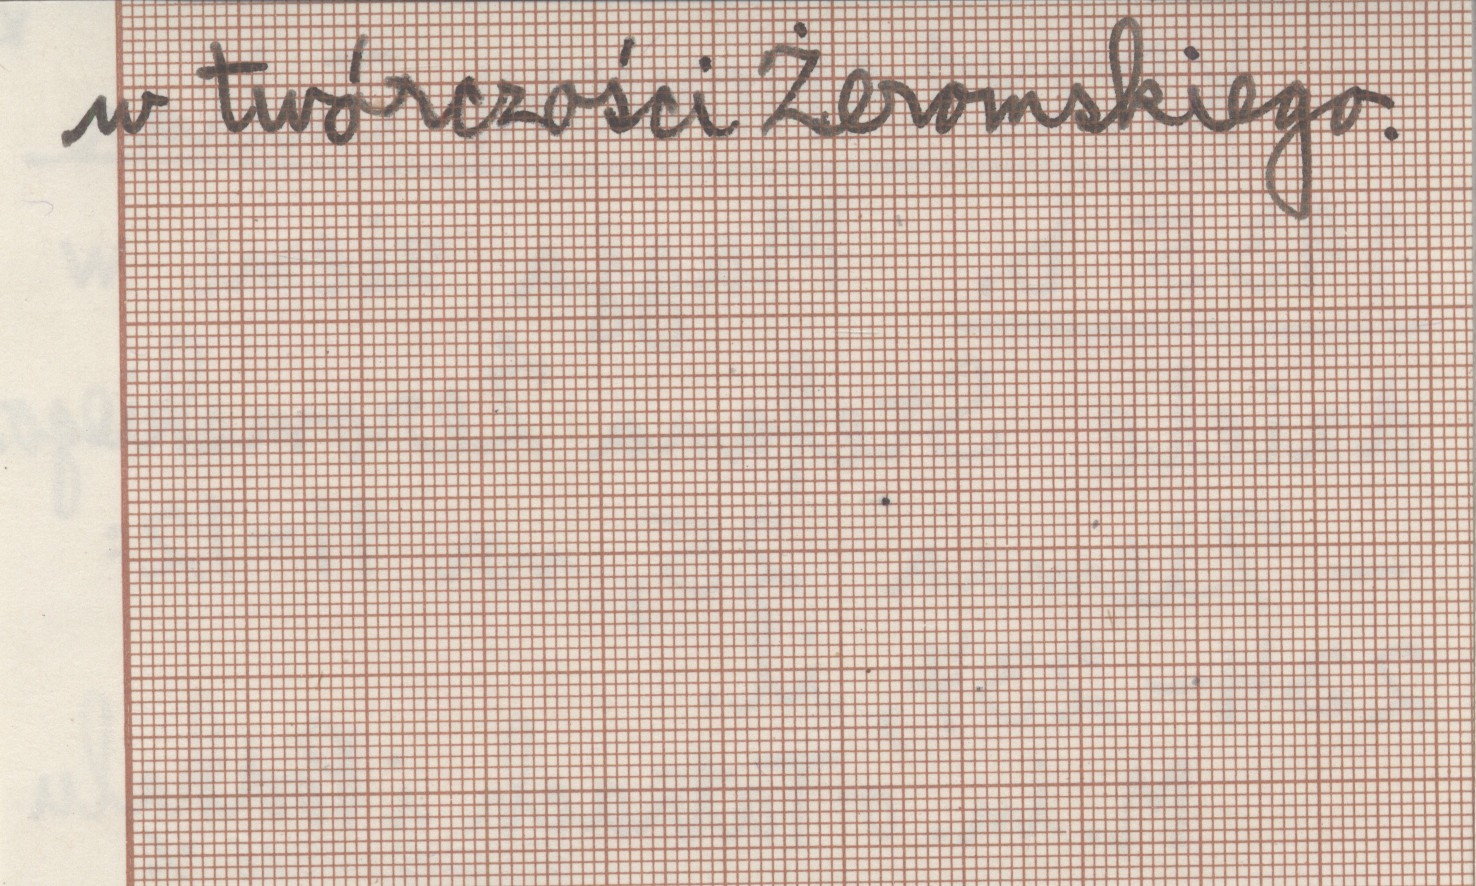 w twórczości Żeromskiego.